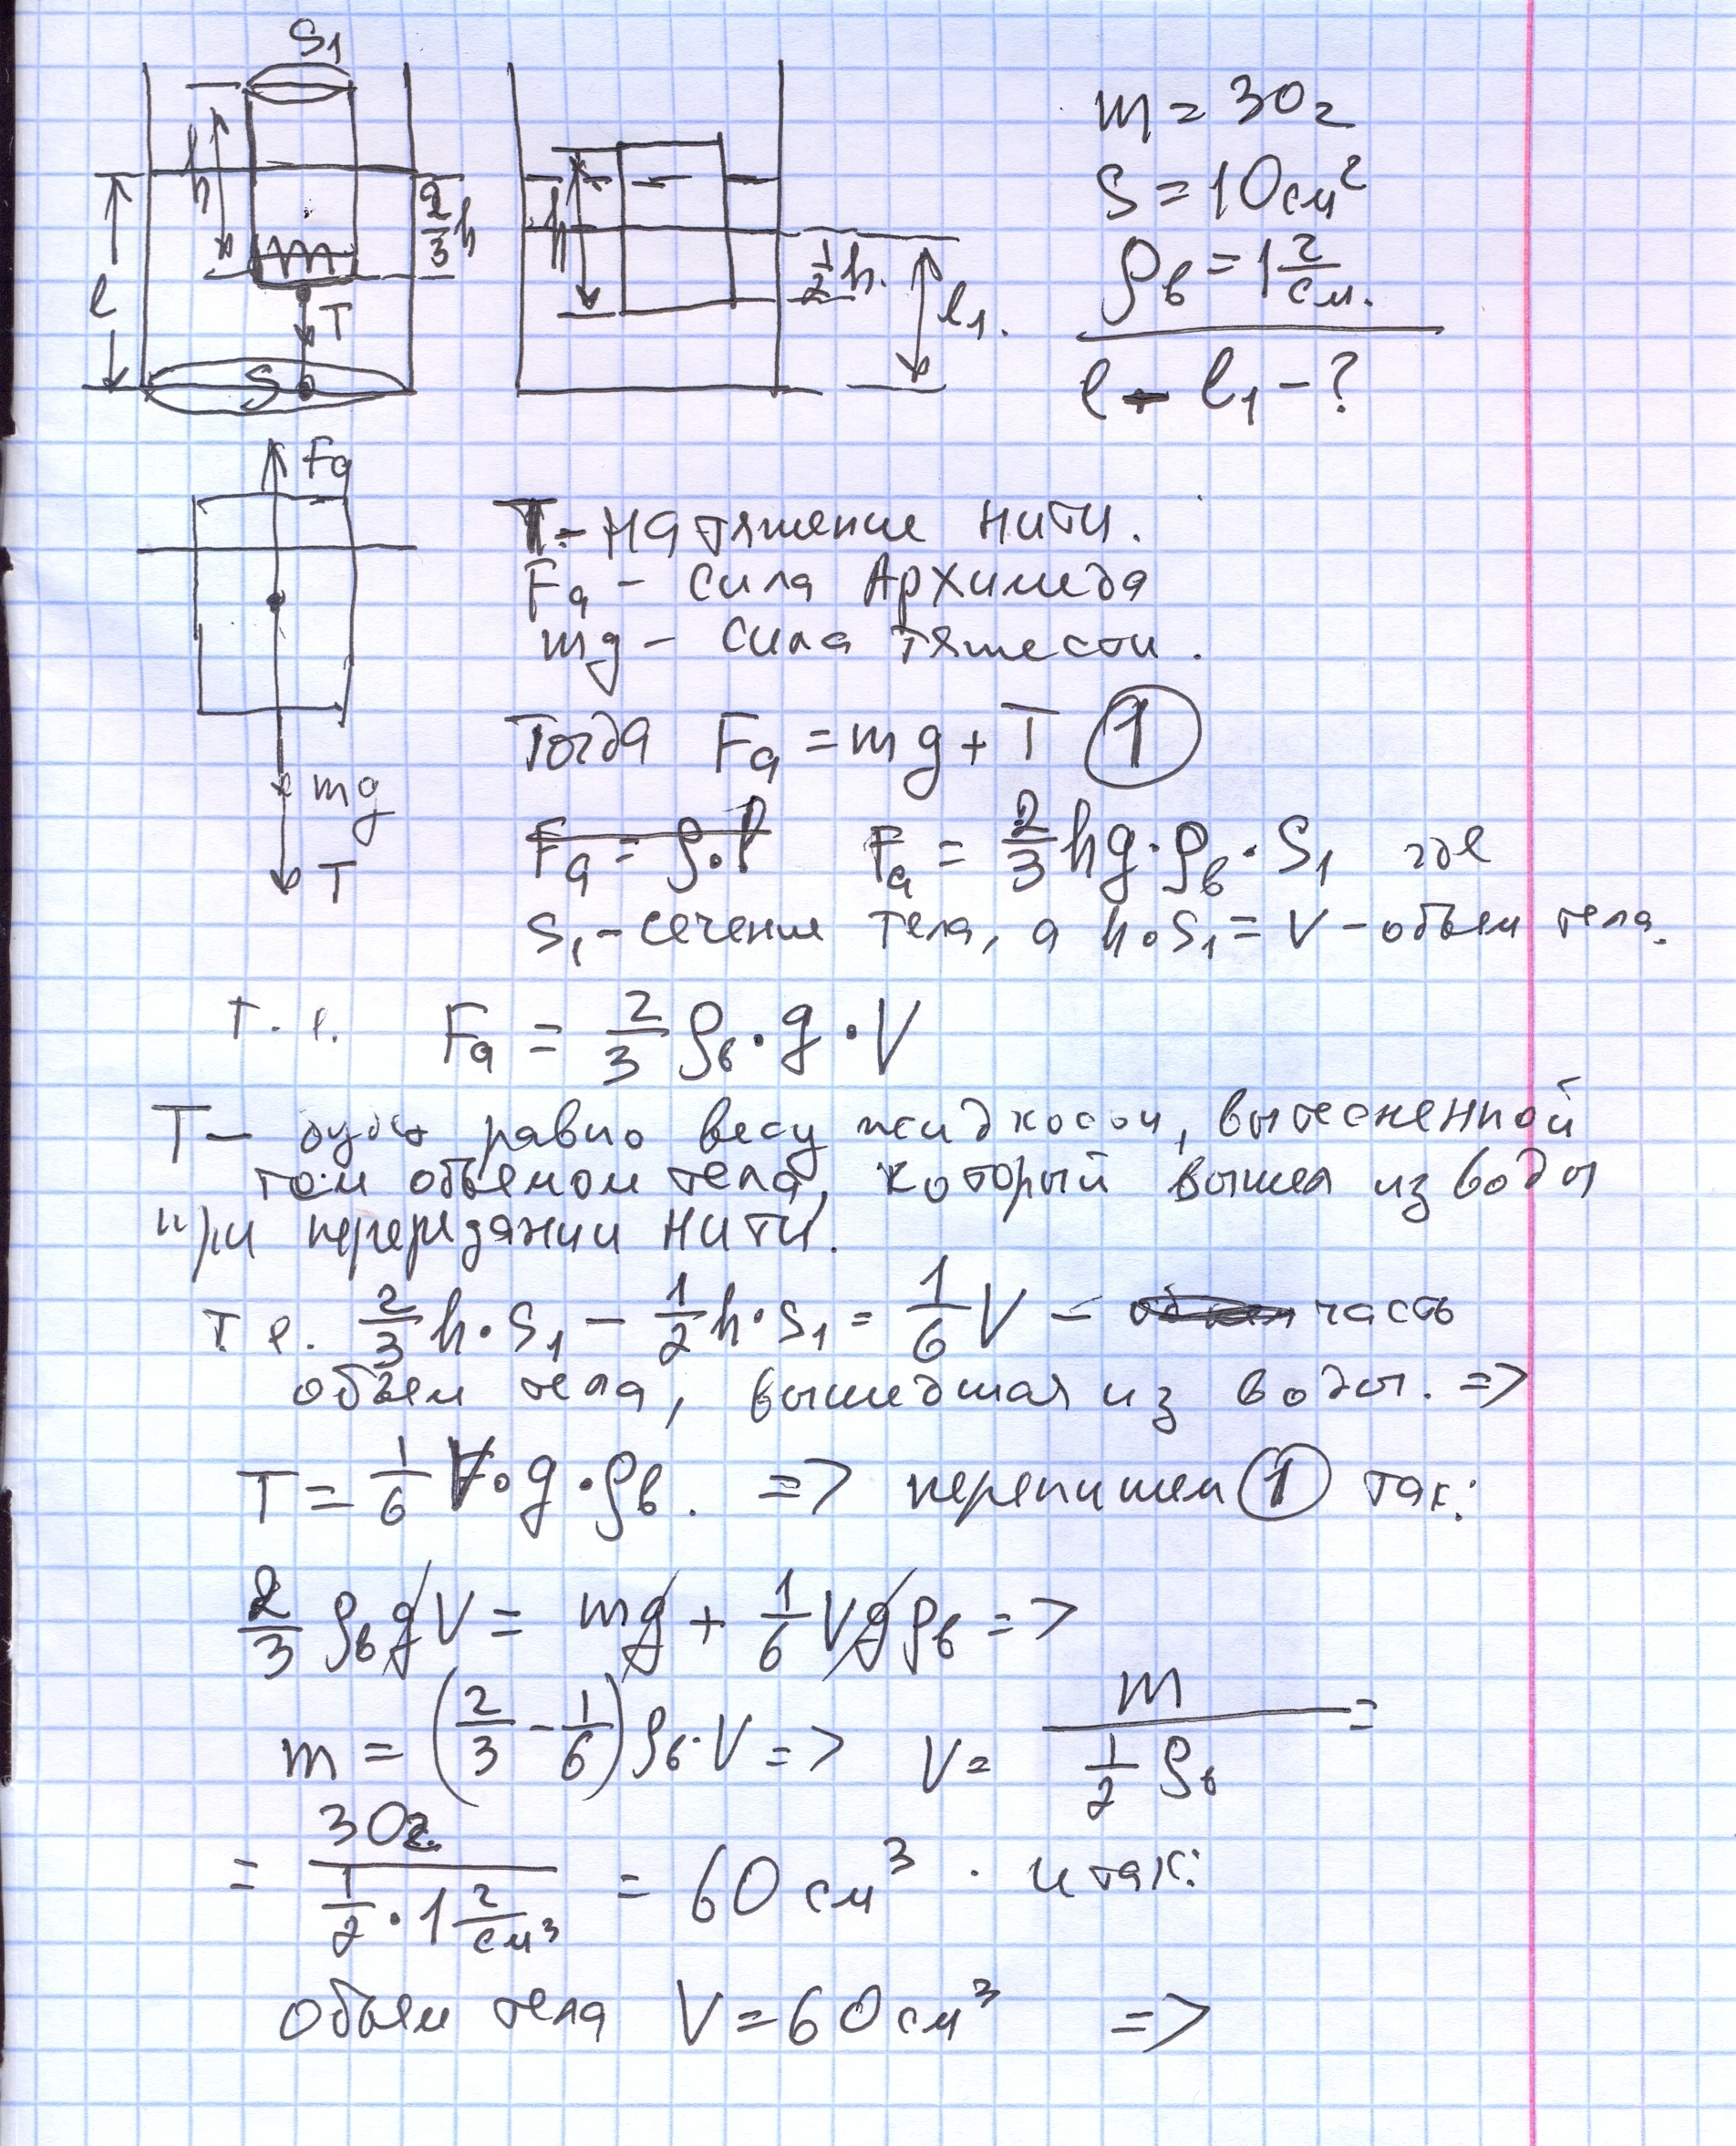 S₁
h
l
m
2/3 h
T
S
h
1/2 h.
l₁.
m = 30г
S = 10см²
ρв = 1 г/см.
l - l₁ - ?
Fа
mg
T
T - натяжение нити.
Fа - сила Архимеда
mg - сила тяжести.
Тогда Fа = mg + T ①
Fа = ρ·l Fа = 2/3 hg·ρв·S₁ где
S₁ - сечение тела, а h·S₁ = V - объем тела.
т.е. Fа = 2/3 ρв·g·V
T - будет равно весу жидкости, вытесненной
тем объемом тела, который вышел из воды
при перерезании нити.
т.е. 2/3 h·S₁ - 1/2 h·S₁ = 1/6 V - часть
объем тела, вышедшая из воды. =>
T = 1/6 V·g·ρв. => перепишем ① так:
2/3 ρв g V = mg + 1/6 V g ρв =>
m = (2/3 - 1/6) ρв·V => V = m / (1/2 ρв) =
= 30г. / (1/2 · 1 г/см³) = 60 см³. итак:
объем тела V = 60 см³ =>